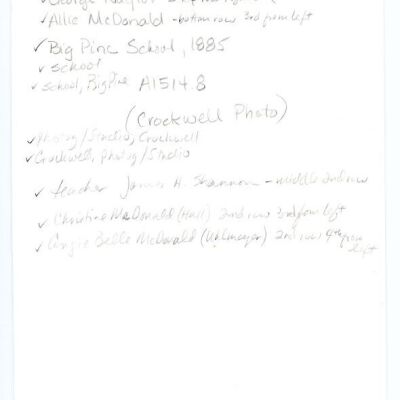 ✓ Allie McDonald - bottom row 3rd from left
✓ Big Pine School, 1885
✓ School
✓ School, Big Pine A1514.8
(Crockwell Photo)
✓ Photog/Studio, Crockwell
✓ Crockwell, Photog/Studio
✓ teacher James H. Shannon - middle 2nd row
✓ Christine McDonald (Hall) 2nd row 3rd from left
✓ Angie Belle McDonald (Uhlmeyer) 2nd row 4th from
left